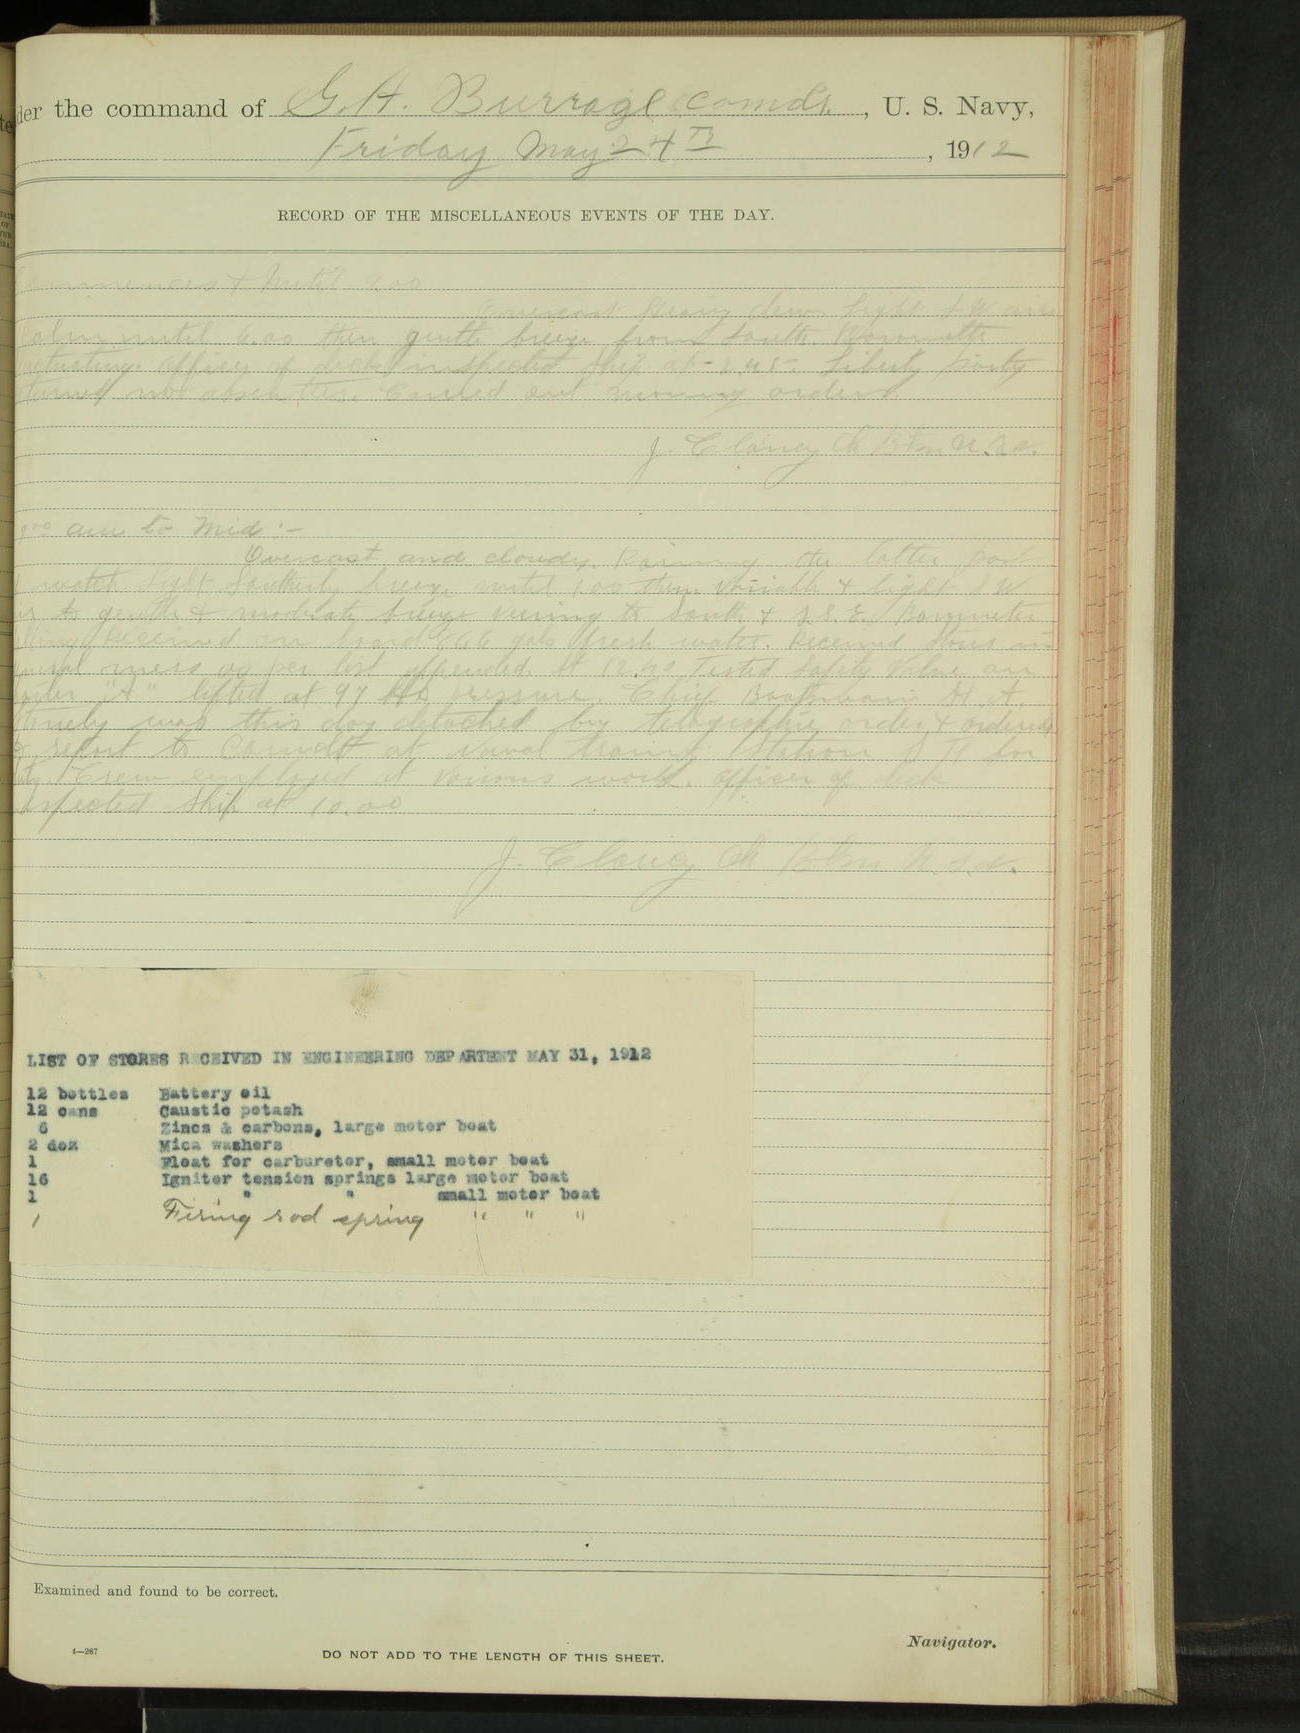 der the command of G. H. Burrage Comdr. , U. S. Navy,
Friday May 24th , 1912
RECORD OF THE MISCELLANEOUS EVENTS OF THE DAY.
until 9.00
Overcast Heavy dew. Light S.W. airs
Calm until 6.00 then gentle breeze from South. Barometer
officer of deck inspected ship at 2.45. Liberty party
no absentees. Carried out morning orders.
J. Clancy Ch Btsn U.S.N.
am to Mid :-
Overcast and cloudy. Raining the latter part
watch. Light Southerly breeze until 1.00 then variable & light S.W.
to gentle & moderate breeze veering to South & S.S.E. Barometer
Received on board gals fresh water. Received stores in
mess as per list appended. At 12.40 Tested Safety Valve on
"A" lifted at 97 lbs pressure. Chief Boatswain H. A.
was this day detached by telegraphic order & ordered
report to Comdt at Naval Station for
Crew employed at various work. Officer of deck
inspected ship at 10.00
J. Clancy Ch Btsn U.S.N.
LIST OF STORES R CEIVED IN ENGINEERING DEPARTENT MAY 31, 1912
12 bottles Battery oil
12 cans Caustic potash
6 Zincs & carbons, large motor boat
2 doz Mica washers
1 Float for carburetor, small motor boat
16 Igniter tension springs large motor boat
1 " " small motor boat
1 Firing rod spring " " "
Examined and found to be correct.
Navigator.
4—287
DO NOT ADD TO THE LENGTH OF THIS SHEET.